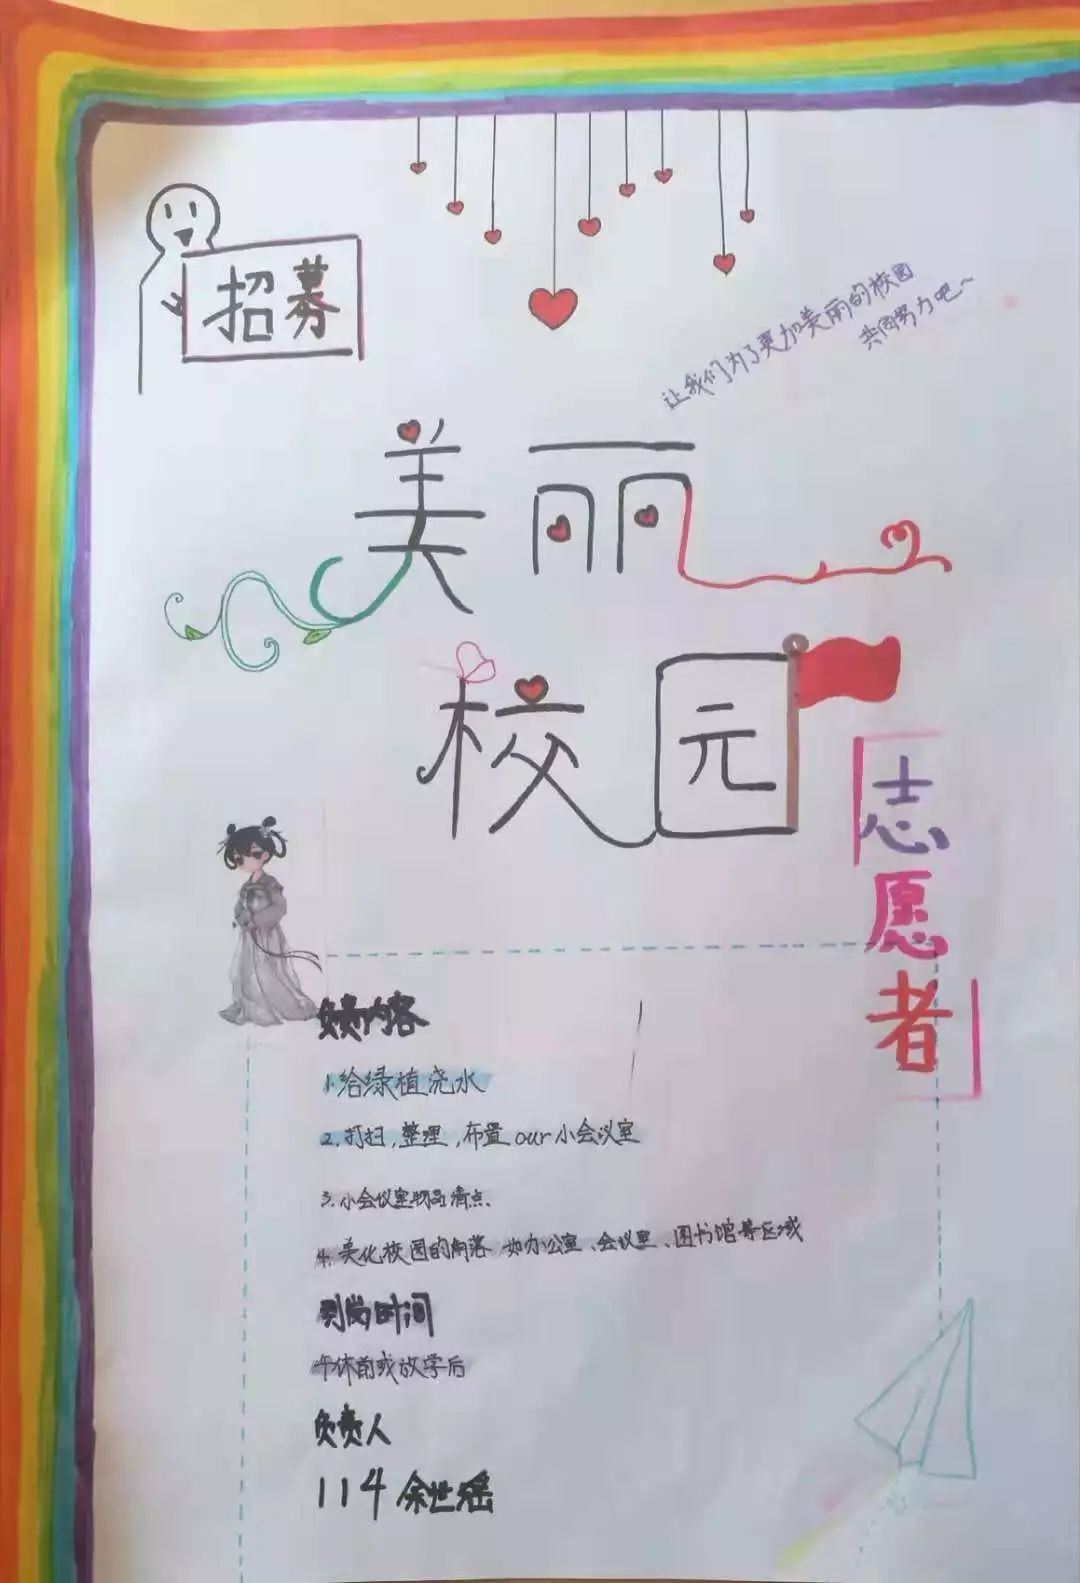 招募
让我们为了更加美丽的校园
共同努力吧~
美丽
校园
志愿者
负责内容
1.给绿植浇水
2.打扫,整理,布置our小会议室
3.小会议室物品清点.
4.美化校园的角落 如办公室、会议室、图书馆等区域
到岗时间
午休前或放学后
负责人
114 余世瑶